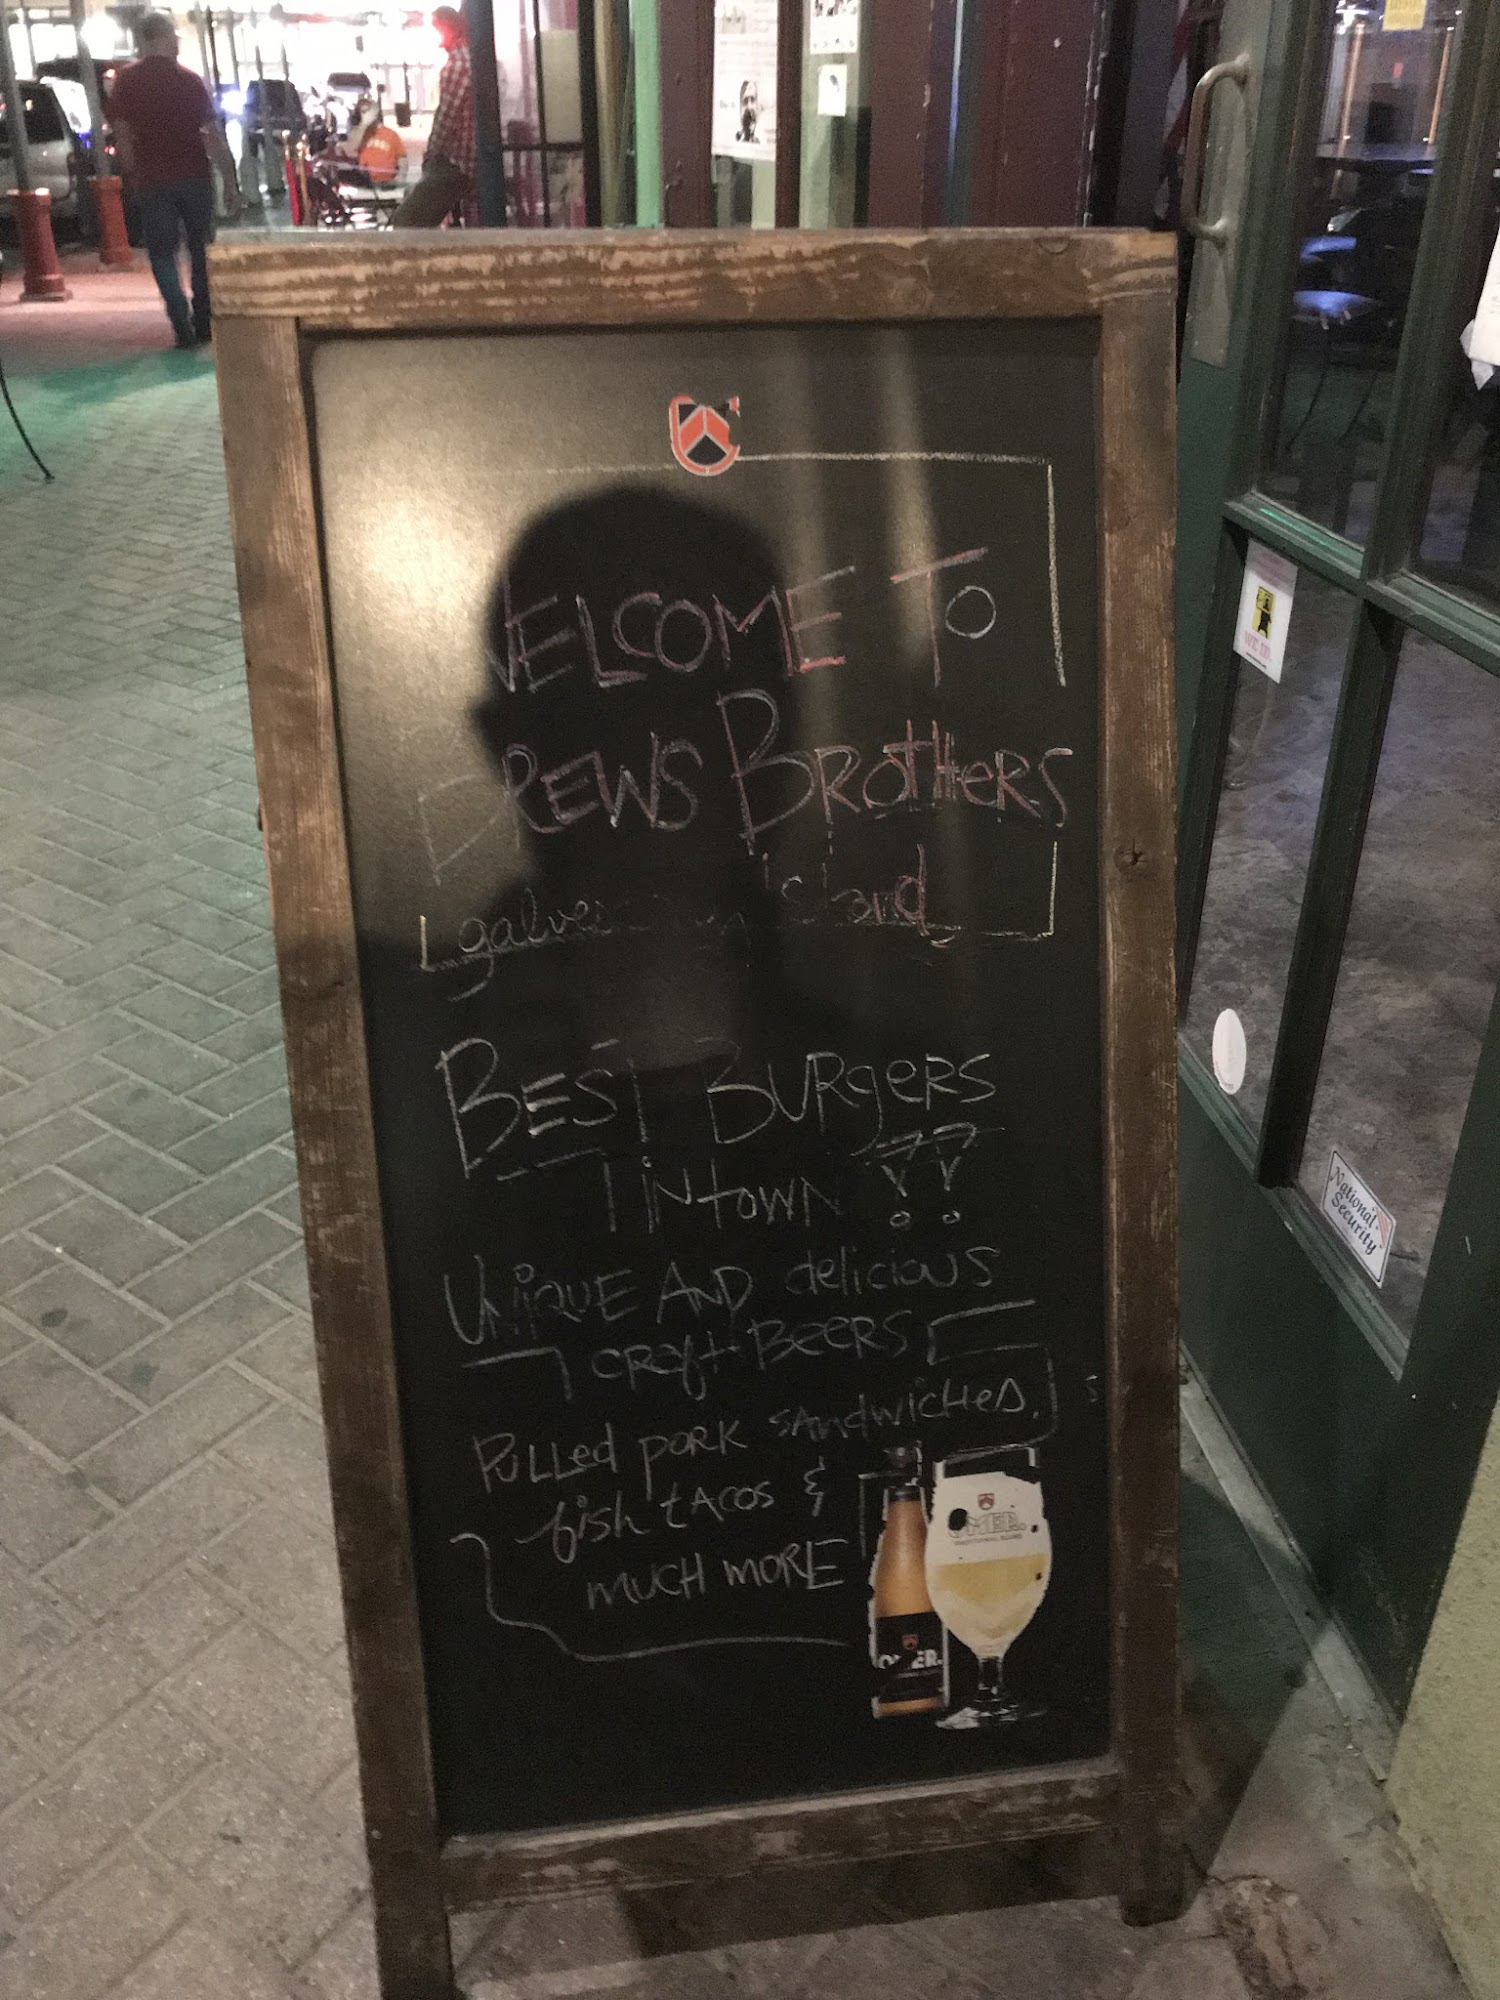 WELCOME TO
BREWS BROTHERS
galveston Island
BEST BURgeRS
IN town !!
UNiQUE AND delicious
craft BEERS
PuLLed poRK SANdWicHeS,
fish tAcos &
MUCH MORE
OMER.
TRADITIONAL BLOND
OMER.
National
Security